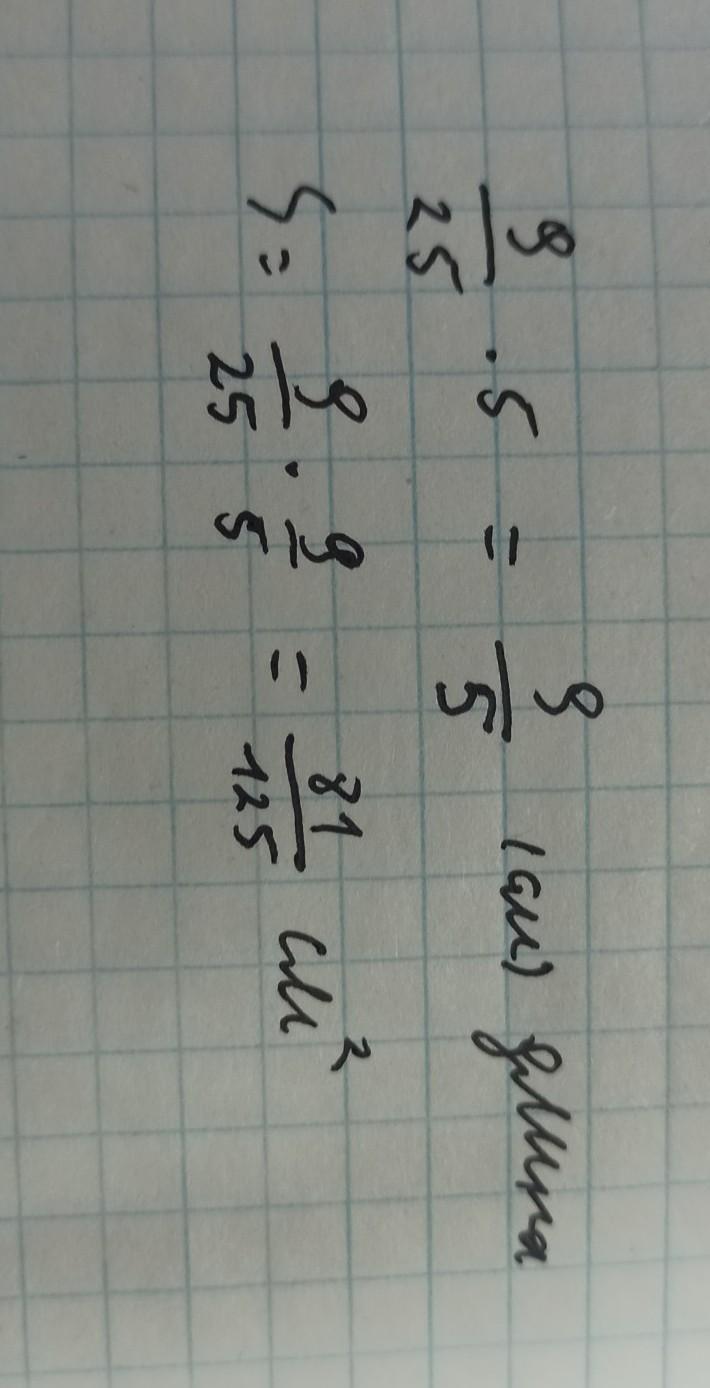 9/25 · 5 = 9/5 (см) длина
S = 9/25 · 9/5 = 81/125 см²